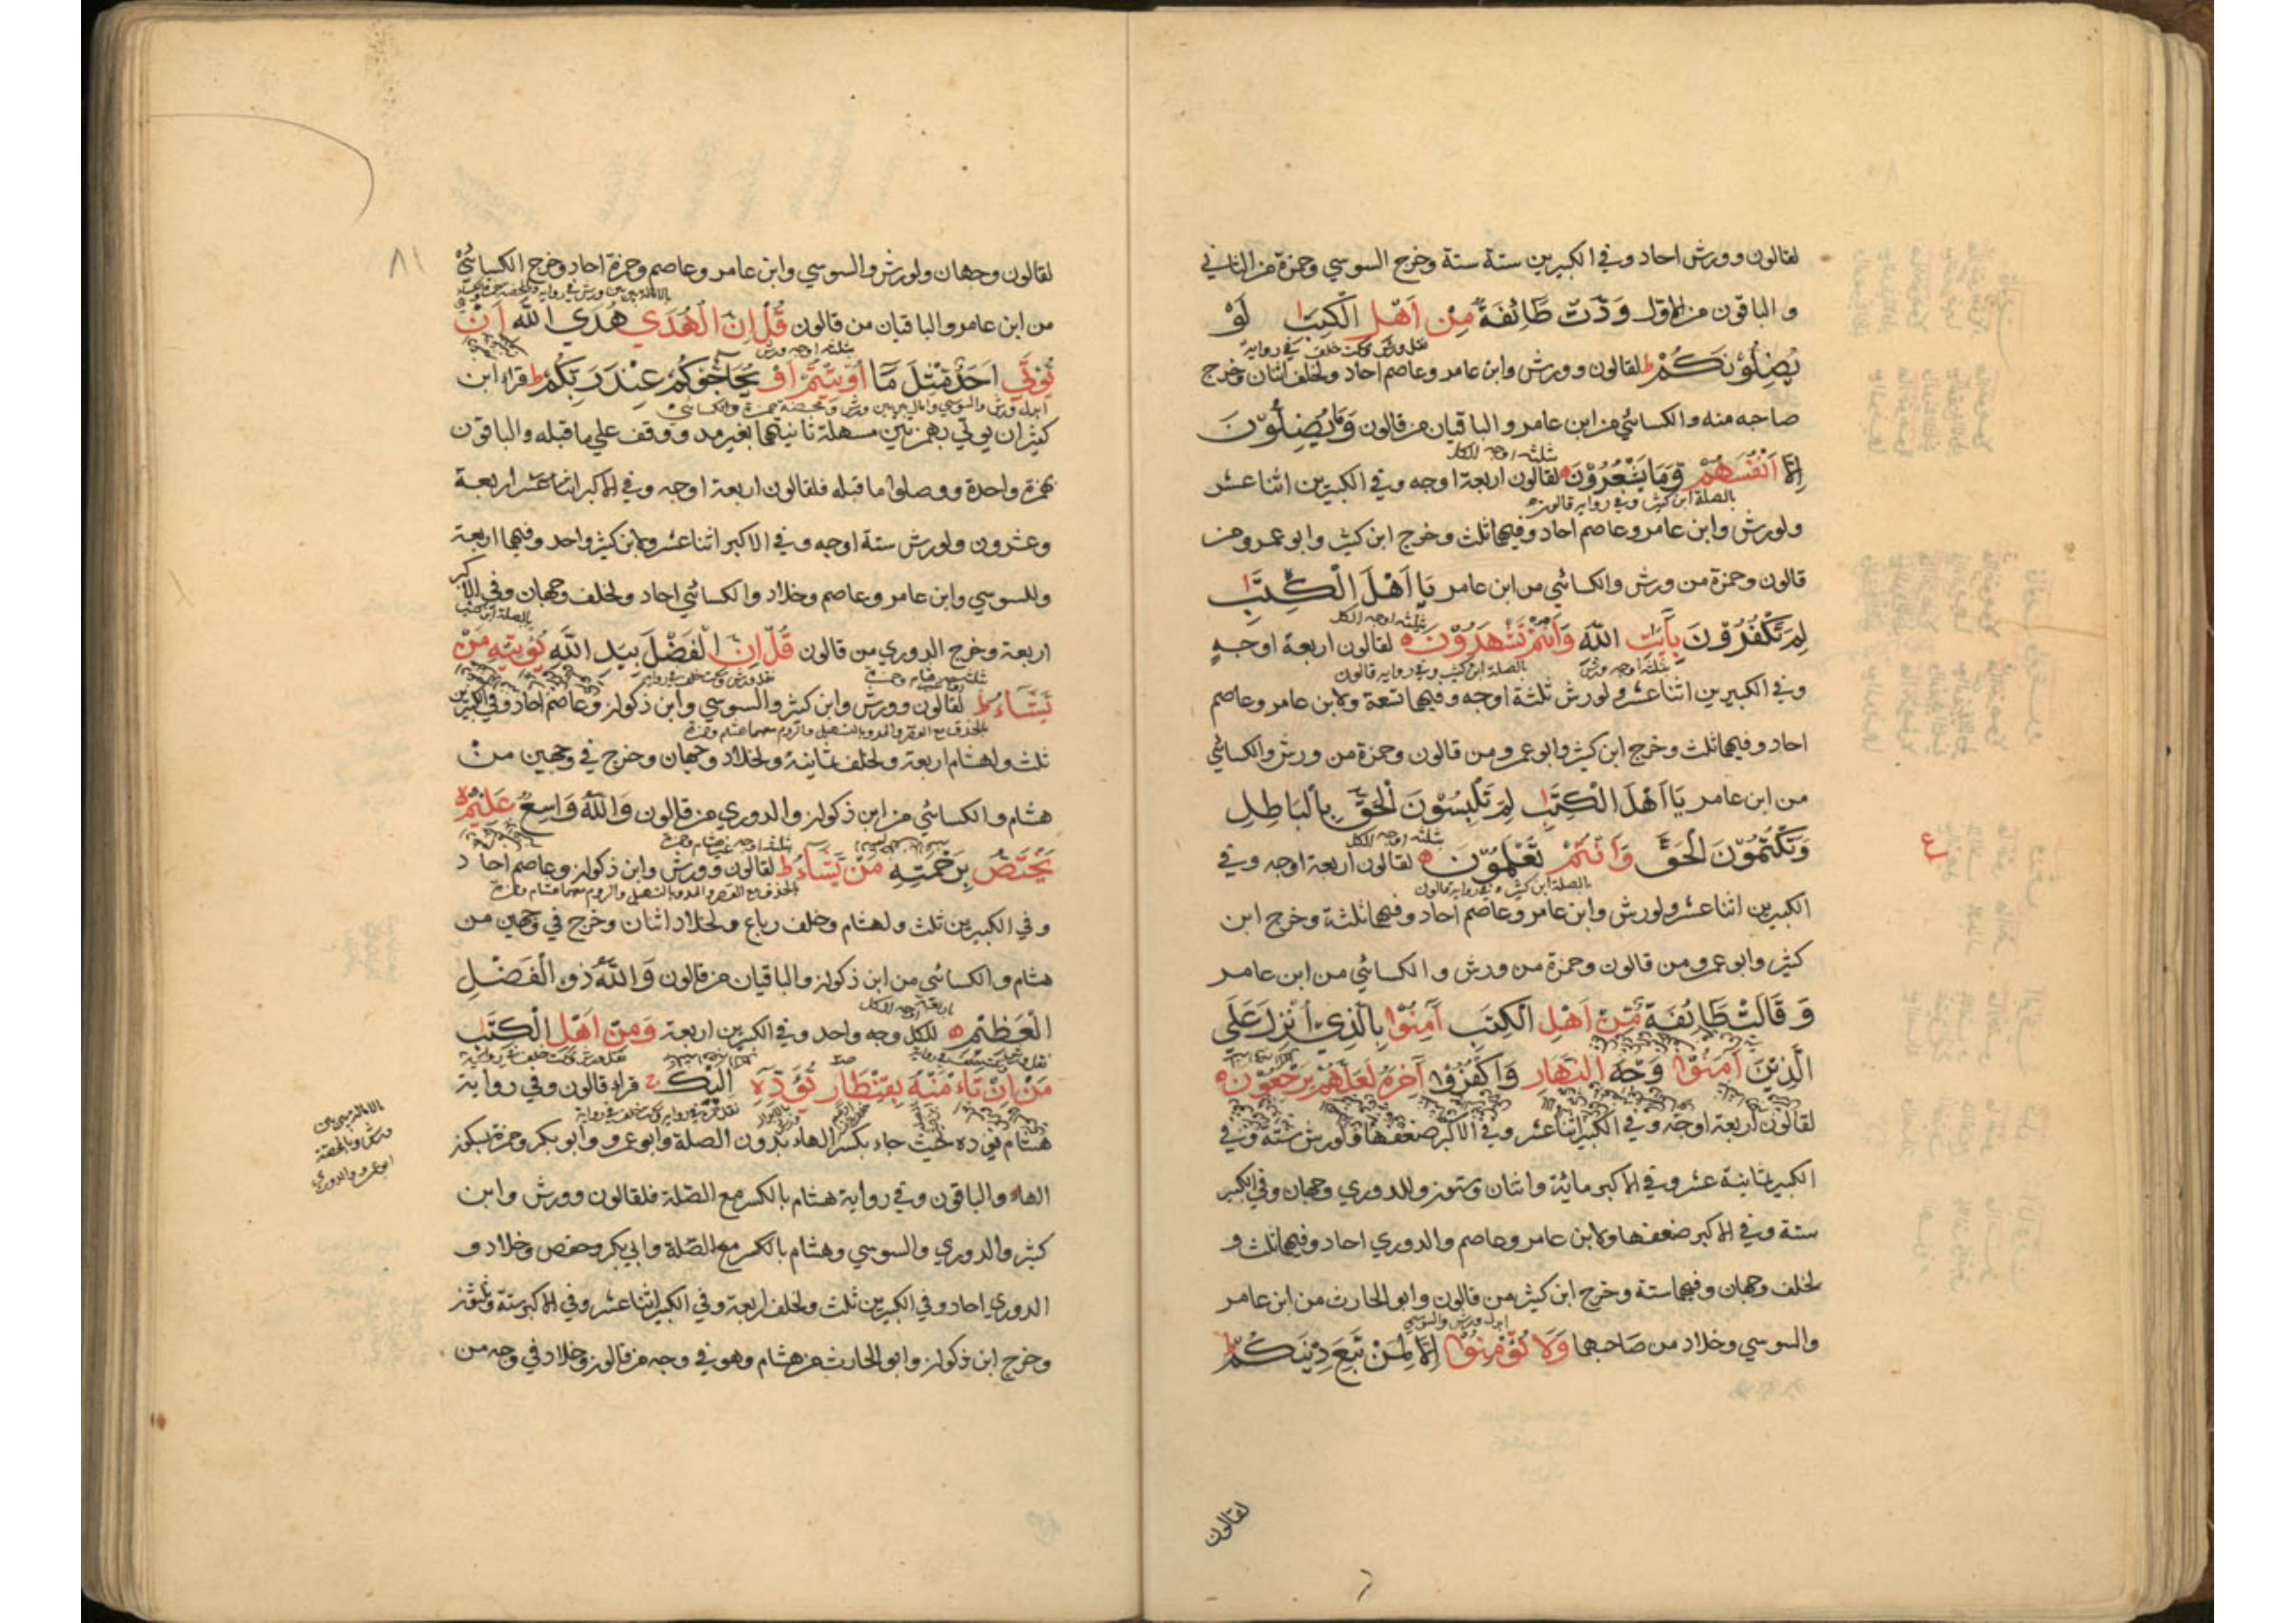 لقالون وورش احاد وفي الكبيرين ستة ستة وخرج السوسي وحمزة من الثاني
والباقون من الاول وَدَّتْ طَائِفَةٌ مِنْ اَهْلِ الْكِتٰبِ لَوْ
نقل ورش وسكت خلف في رواية
يُضِلُّوْنَكُمْ ط لقالون وورش وابن عامر وعاصم احاد ولخلف اثنان وخرج
صاحبه منه والكسائي من ابن عامر والباقيان من قالون وَمَا يُضِلُّوْنَ
ثلثة اوجه للكل
اِلَّا اَنْفُسَهُمْ وَمَا يَشْعُرُوْنَ ه لقالون اربعة اوجه وفي الكبيرين اثنا عشر
بالصلة ابن كثير وفي رواية قالون
ولورش وابن عامر وعاصم احاد وفيهما ثلث وخرج ابن كثير وابو عمرو من
قالون وحمزة من ورش والكسائي من ابن عامر يَا اَهْلَ الْكِتٰبِ
ثلثة اوجه للكل
لِمَ تَكْفُرُوْنَ بِآيٰتِ اللّٰهِ وَاَنْتُمْ تَشْهَدُوْنَ ه لقالون اربعة اوجه
ثلثة اوجه ورش بالصلة ابن كثير وفي رواية قالون
وفي الكبيرين اثنا عشر ولورش ثلثة اوجه وفيهما تسعة ولابن عامر وعاصم
احاد وفيهما ثلث وخرج ابن كثير وابو عمرو من قالون وحمزة من ورش والكسائي
من ابن عامر يَا اَهْلَ الْكِتٰبِ لِمَ تَلْبِسُوْنَ الْحَقَّ بِالْبَاطِلِ
ثلثة اوجه للكل
وَتَكْتُمُوْنَ الْحَقَّ وَاَنْتُمْ تَعْلَمُوْنَ ه لقالون اربعة اوجه وفي
ع
بالصلة ابن كثير وفي رواية قالون
الكبيرين اثنا عشر ولورش وابن عامر وعاصم احاد وفيهما ثلثة وخرج ابن
كثير وابو عمرو من قالون وحمزة من ورش والكسائي من ابن عامر
وَقَالَتْ طَائِفَةٌ مِنْ اَهْلِ الْكِتٰبِ آمِنُوْا بِالَّذِيْ اُنْزِلَ عَلَى
الَّذِيْنَ آمَنُوْا وَجْهَ النَّهَارِ وَاكْفُرُوْا آخِرَهُ لَعَلَّهُمْ يَرْجِعُوْنَ ه
لقالون اربعة اوجه وفي الكبير اثنا عشر وفي الاكبر ضعفها ولورش ستة وفي
الكبير ثمانية عشر وفي الاكبر مائة واثنان وستون وللدوري وجهان وفي الكبير
ستة وفي الاكبر ضعفها ولابن عامر وعاصم والدوري احاد وفيهما ثلث و
لخلف وجهان وفيهما ستة وخرج ابن كثير من قالون وابو الحارث من ابن عامر
ابدل ورش والسوسي
والسوسي وخلاد من صاحبها وَلَا تُؤْمِنُوْا اِلَّا لِمَنْ تَبِعَ دِيْنَكُمْ ط
لقالون
٨١
لقالون وجهان ولورش والسوسي وابن عامر وعاصم وحمزة احاد وخرج الكسائي
من ابن عامر والباقيان من قالون قُلْ اِنَّ الْهُدَى هُدَى اللّٰهِ اَنْ
ثلثة اوجه ورش
يُؤْتٰى اَحَدٌ مِثْلَ مَا اُوْتِيْتُمْ اَوْ يُحَاجُّوْكُمْ عِنْدَ رَبِّكُمْ ط قراء ابن
ابدل ورش والسوسي وامال بين بين ورش ومحضة حمزة والكسائي
كثير ان يوتي بهمزتين مسهلة ثانيتهما بغير مد ووقف على ما قبله والباقون
بهمزة واحدة ووصلوا ما قبله فلقالون اربعة اوجه وفي الاكبر اثنا عشر اربعة
وعشرون ولورش ستة اوجه وفي الاكبر اثنا عشر ولابن كثير واحد وفيهما اربعة
وللسوسي وابن عامر وعاصم وخلاد والكسائي احاد ولخلف وجهان وفي الاكبر
بالصلة ابن كثير
اربعة وخرج الدوري من قالون قُلْ اِنَّ الْفَضْلَ بِيَدِ اللّٰهِ يُؤْتِيْهِ مَنْ
يَشَاءُ ط لقالون وورش وابن كثير والسوسي وابن ذكوان وعاصم احاد وفي الكبيرين
بالحذف مع القصر والمد وبالتسهيل والروم معهما هشام وحمزة
ثلث ولهشام اربعة ولخلف ثمانية ولخلاد وجهان وخرج في وجهين من
هشام والكسائي من ابن ذكوان والدوري من قالون وَاللّٰهُ وَاسِعٌ عَلِيْمٌ ه
يَخْتَصُّ بِرَحْمَتِهِ مَنْ يَشَاءُ ط لقالون وورش وابن ذكوان وعاصم احاد
بالحذف مع القصر والمد وبالتسهيل والروم معهما هشام وحمزة
وفي الكبيرين ثلث ولهشام وخلف رباع ولخلاد اثنان وخرج في وجهين من
هشام والكسائي من ابن ذكوان والباقيان من قالون وَاللّٰهُ ذُو الْفَضْلِ
اربعة اوجه للكل
الْعَظِيْمِ ه للكل وجه واحد وفي الكبيرين اربعة وَمِنْ اَهْلِ الْكِتٰبِ
مَنْ اِنْ تَأْمَنْهُ بِقِنْطَارٍ يُؤَدِّهٖ اِلَيْكَ ج قراء قالون وفي رواية
هشام يؤده حيث جاء بكسر الهاء بدون الصلة وابو عمرو وابو بكر وحمزة بسكون
الامالة بين بين
ورش وبالمحضة
ابو عمرو والدوري
الهاء والباقون وفي رواية هشام بالكسر مع الصلة فلقالون وورش وابن
كثير والدوري والسوسي وهشام بالكسر مع الصلة وابي بكر وحفص وخلاد و
الدوري احاد وفي الكبيرين ثلث ولخلف اربعة وفي الكبير اثنا عشر وفي الاكبر ستة وثلثون
وخرج ابن ذكوان وابو الحارث من هشام وهو في وجه من قالون وخلاد في وجه من